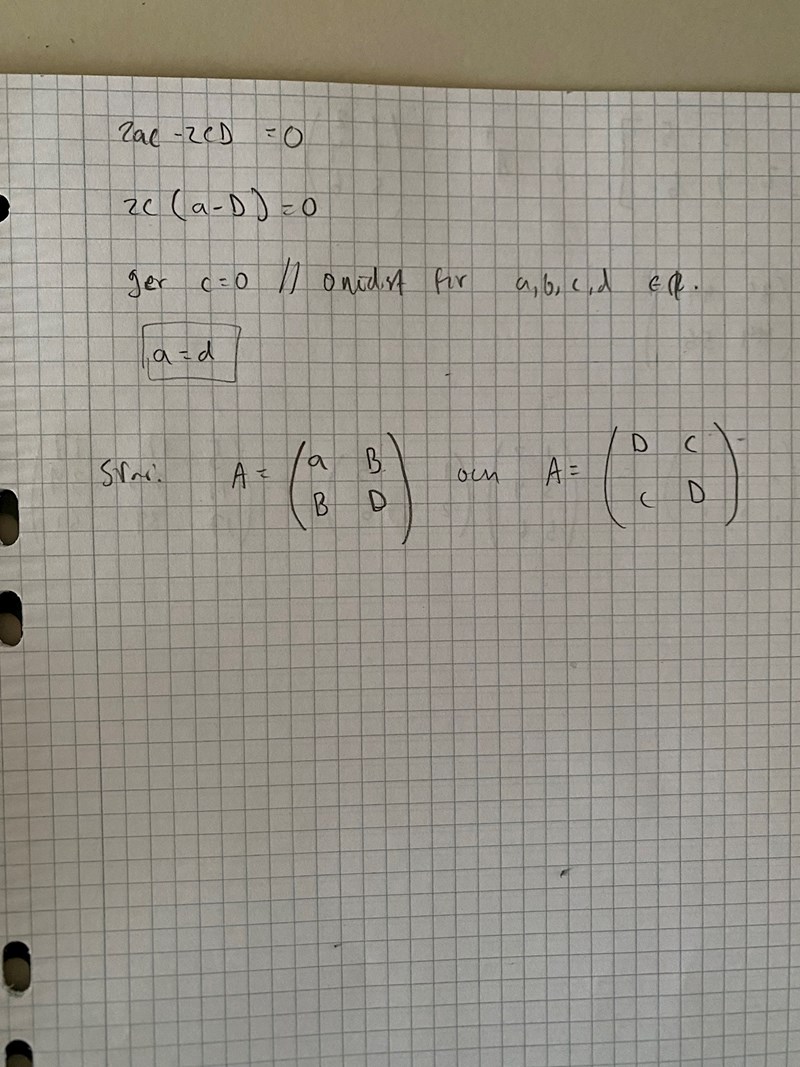 2ac - 2cD = 0
2c (a-D) = 0
ger c=0 // för a,b,c,d ∈ R.
a = d
Svar: A = (a B
B D) och A = (D C
C D)